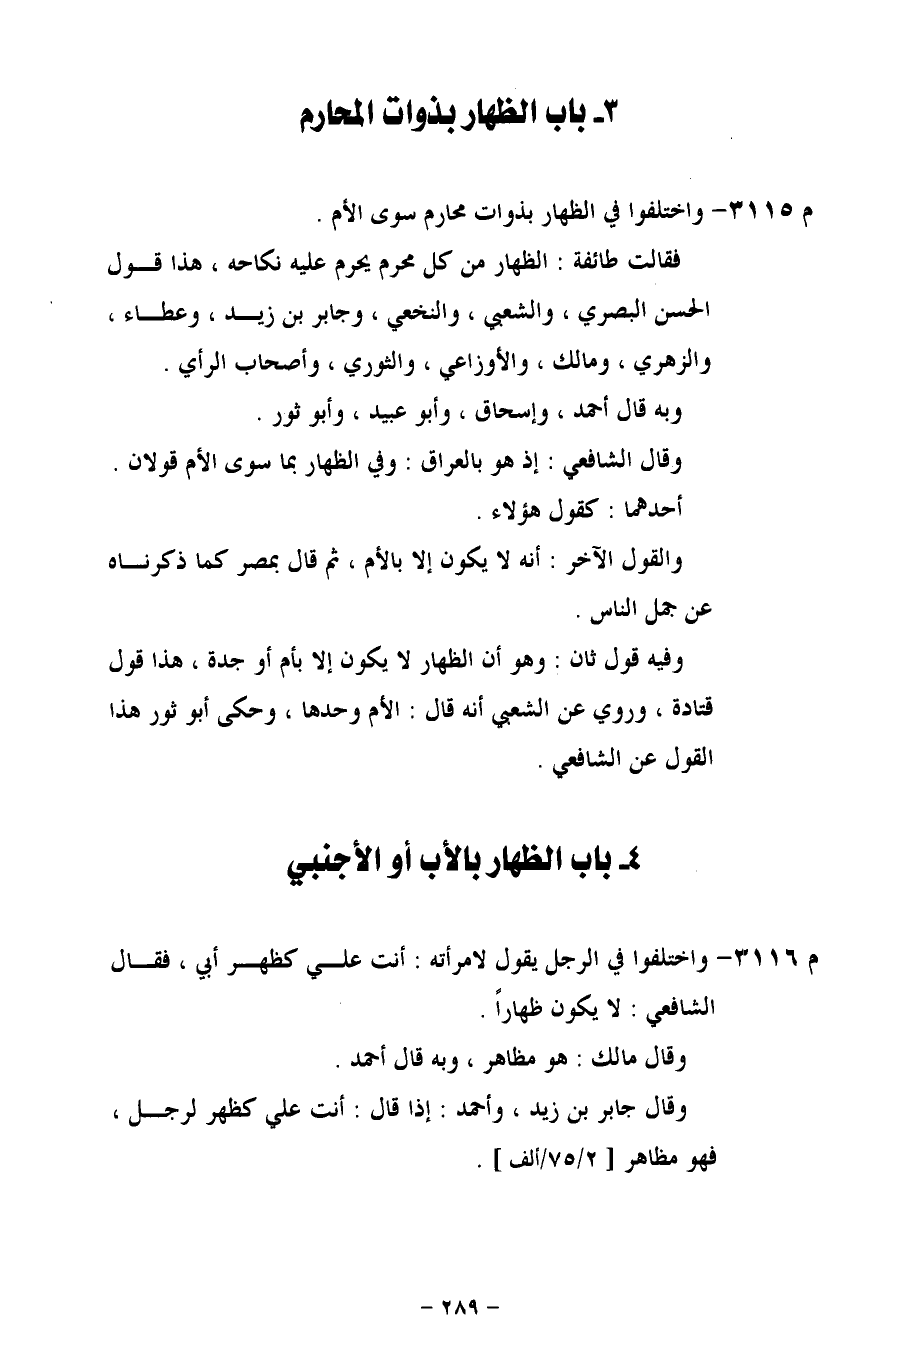 ٣ـ باب الظهار بذوات المحارم
م ٣١١٥– واختلفوا في الظهار بذوات محارم سوى الأم .
فقالت طائفة : الظهار من كل محرم يحرم عليه نكاحه ، هذا قـــول
الحسن البصري ، والشعبي ، والنخعي ، وجابر بن زيـــد ، وعطـــاء ،
والزهري ، ومالك ، والأوزاعي ، والثوري ، وأصحاب الرأي .
وبه قال أحمد ، وإسحاق ، وأبو عبيد ، وأبو ثور .
وقال الشافعي : إذ هو بالعراق : وفي الظهار بما سوى الأم قولان .
أحدهما : كقول هؤلاء .
والقول الآخر : أنه لا يكون إلا بالأم ، ثم قال بمصر كما ذكرنـــاه
عن جمل الناس .
وفيه قول ثان : وهو أن الظهار لا يكون إلا بأم أو جدة ، هذا قول
قتادة ، وروي عن الشعبي أنه قال : الأم وحدها ، وحكى أبو ثور هذا
القول عن الشافعي .
٤ـ باب الظهار بالأب أو الأجنبي
م ٣١١٦– واختلفوا في الرجل يقول لامرأته : أنت علـــي كظهـــر أبي ، فقـــال
الشافعي : لا يكون ظهاراً .
وقال مالك : هو مظاهر ، وبه قال أحمد .
وقال جابر بن زيد ، وأحمد : إذا قال : أنت علي كظهر لرجـــل ،
فهو مظاهر [ ٢/٧٥/ألف ] .
– ٢٨٩ –